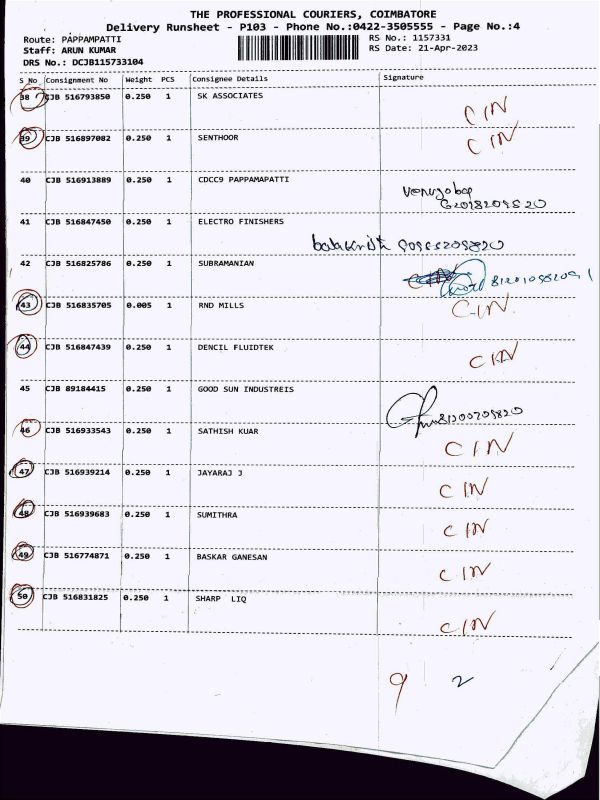 THE PROFESSIONAL COURIERS, COIMBATORE
Delivery Runsheet - P103 - Phone No.:0422-3505555 - Page No.:4
Route: PAPPAMPATTI RS No.: 1157331
Staff: ARUN KUMAR RS Date: 21-Apr-2023
DRS No.: DCJB115733104
S No Consignment No Weight PCS Consignee Details Signature
38 CJB 516793850 0.250 1 SK ASSOCIATES CIN
39 CJB 516897082 0.250 1 SENTHOOR CIN
40 CJB 516913889 0.250 1 CDCC9 PAPPAMAPATTI
41 CJB 516847450 0.250 1 ELECTRO FINISHERS
42 CJB 516825786 0.250 1 SUBRAMANIAN
43 CJB 516835705 0.005 1 RND MILLS CIN
44 CJB 516847439 0.250 1 DENCIL FLUIDTEK CIN
45 CJB 89184415 0.250 1 GOOD SUN INDUSTREIS
46 CJB 516933543 0.250 1 SATHISH KUAR CIN
47 CJB 516939214 0.250 1 JAYARAJ J CIN
48 CJB 516939683 0.250 1 SUMITHRA CIN
49 CJB 516774871 0.250 1 BASKAR GANESAN CIN
50 CJB 516831825 0.250 1 SHARP LIQ CIN
9 2